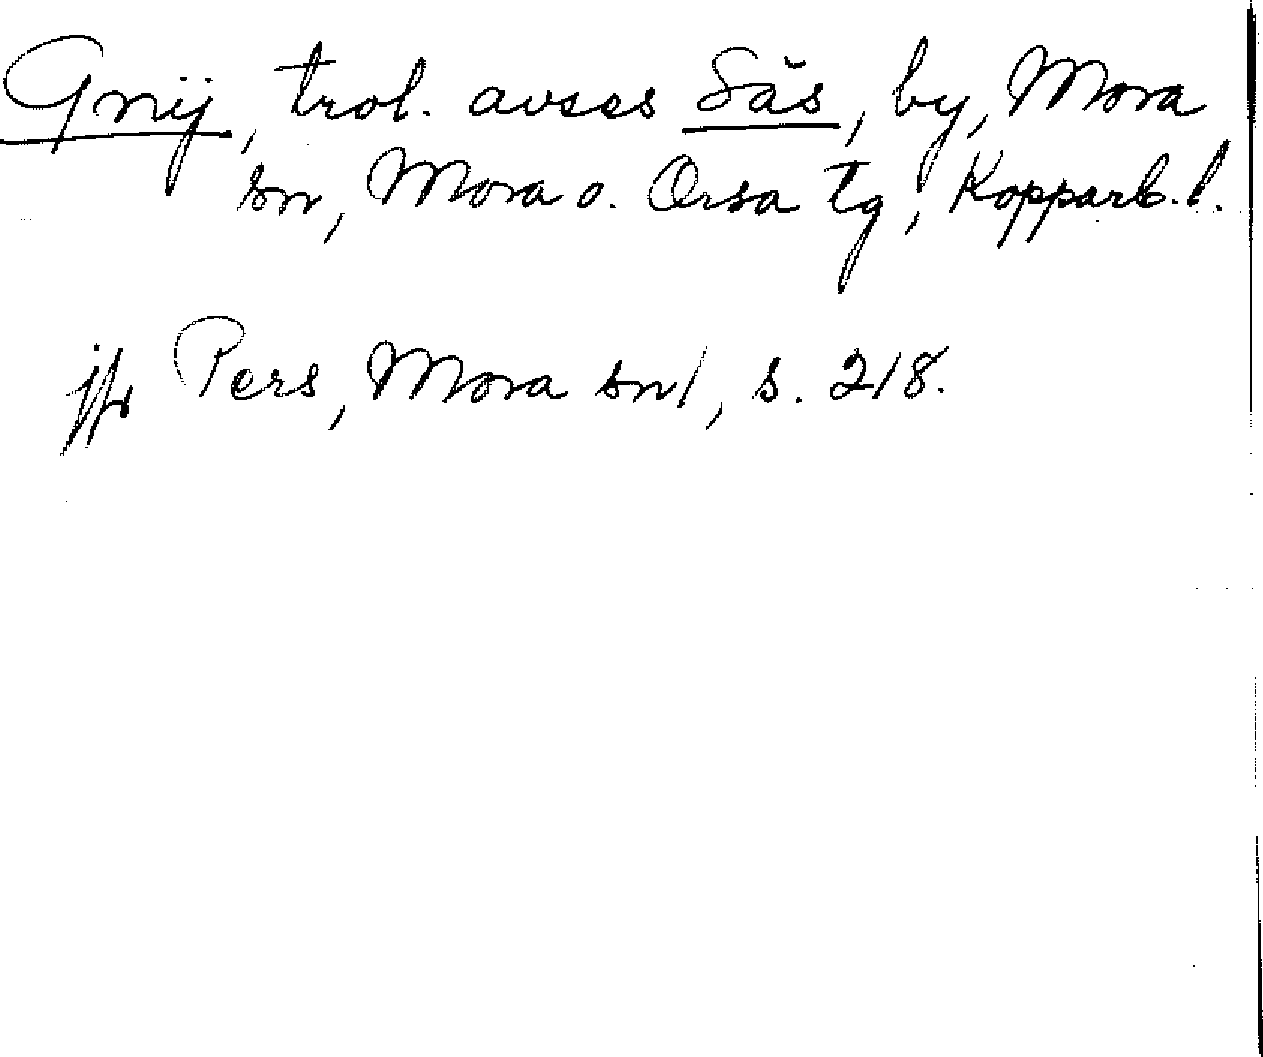 Gnij, trol. avses Säs, by, Mora
sn, Mora o. Orsa tg, Kopparb. l.
jfr Pers, Mora snl, s. 218.